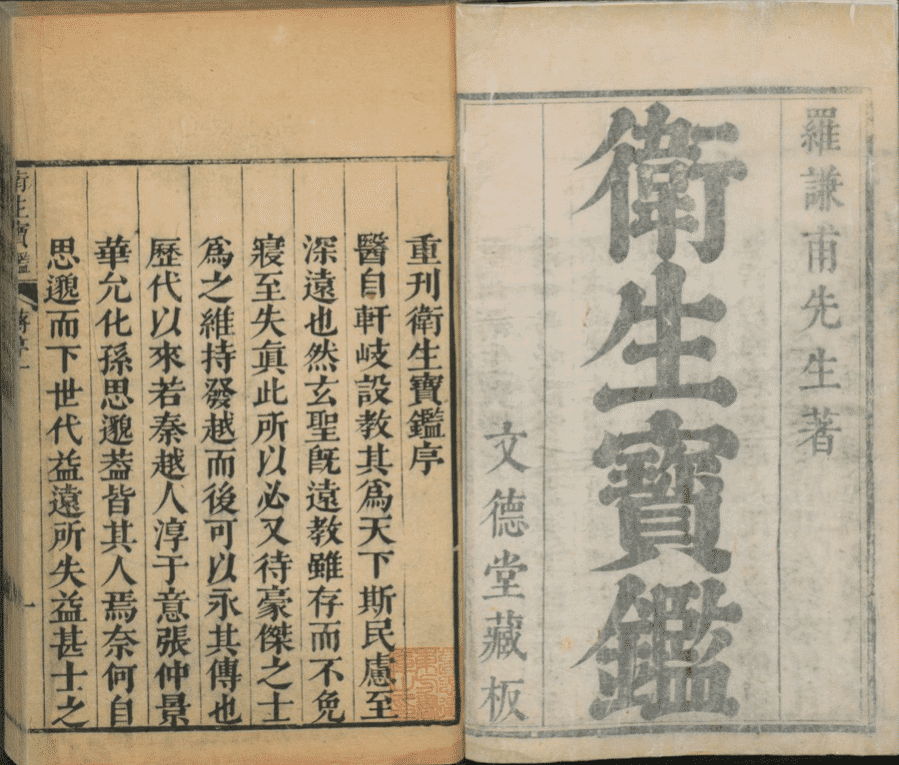 羅謙甫先生著
衛生寶鑑
文德堂藏板
重刊衛生寶鑑序
醫自軒岐設教其爲天下斯民慮至
深遠也然玄聖旣遠教雖存而不免
寖至失眞此所以必又待豪傑之士
爲之維持發越而後可以永其傳也
歷代以來若秦越人淳于意張仲景
華允化孫思邈葢皆其人焉奈何自
思邈而下世代益遠所失益甚士之
衛生寶鑑
一